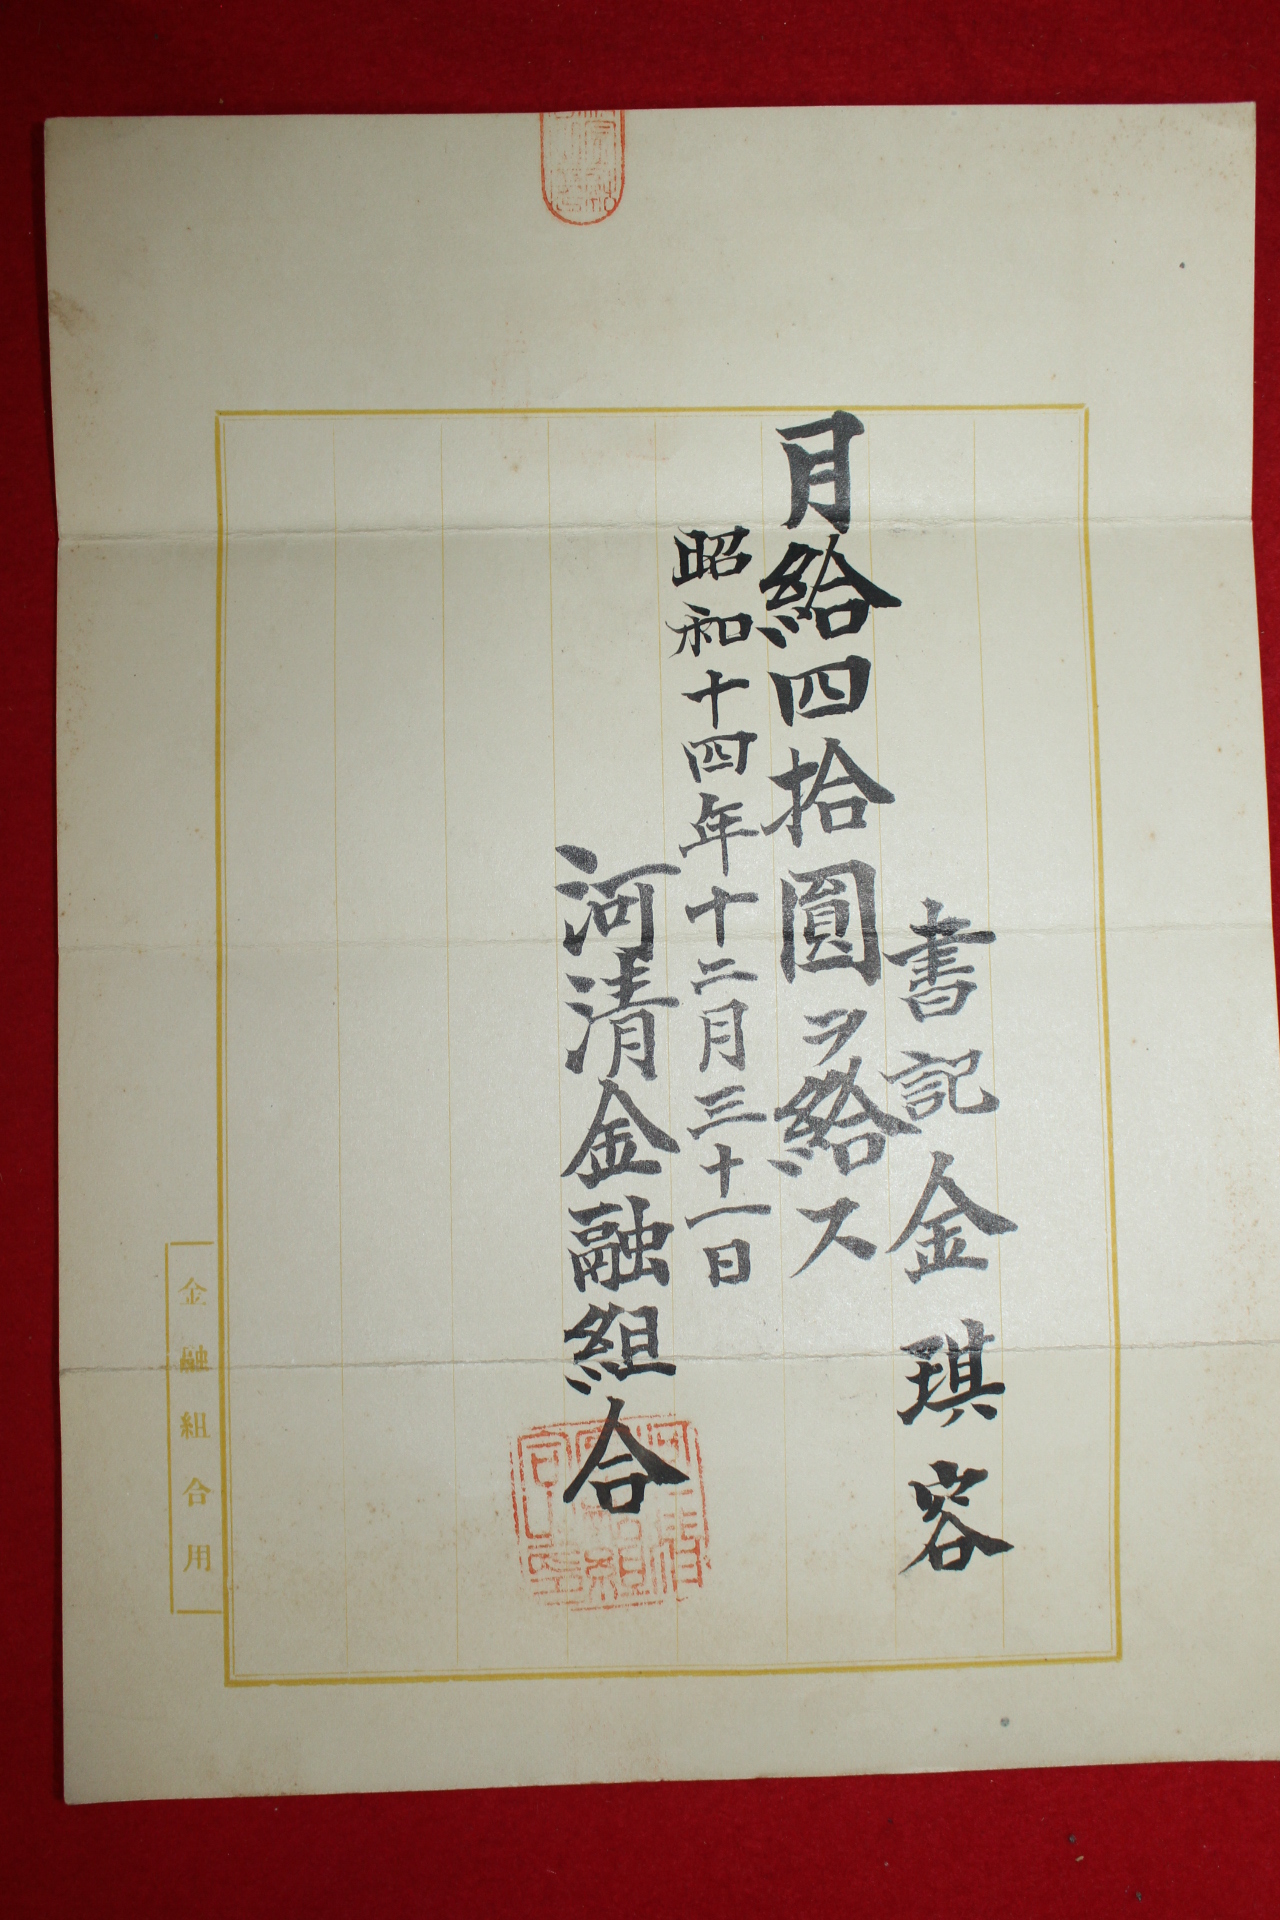 書記 金琪容
月給四拾圓ヲ給ス
昭和十四年十二月三十一日
河清金融組合
金融組合用